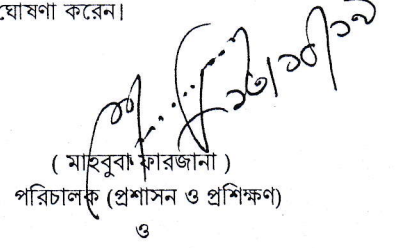 ঘোষণা করেন।
( মাহবুবা ফারজানা )
পরিচালক (প্রশাসন ও প্রশিক্ষণ)
ও